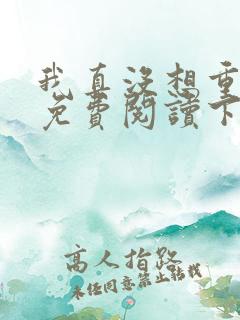 我真沒想重
免費閱讀下
高人指路
未經同意禁止轉載